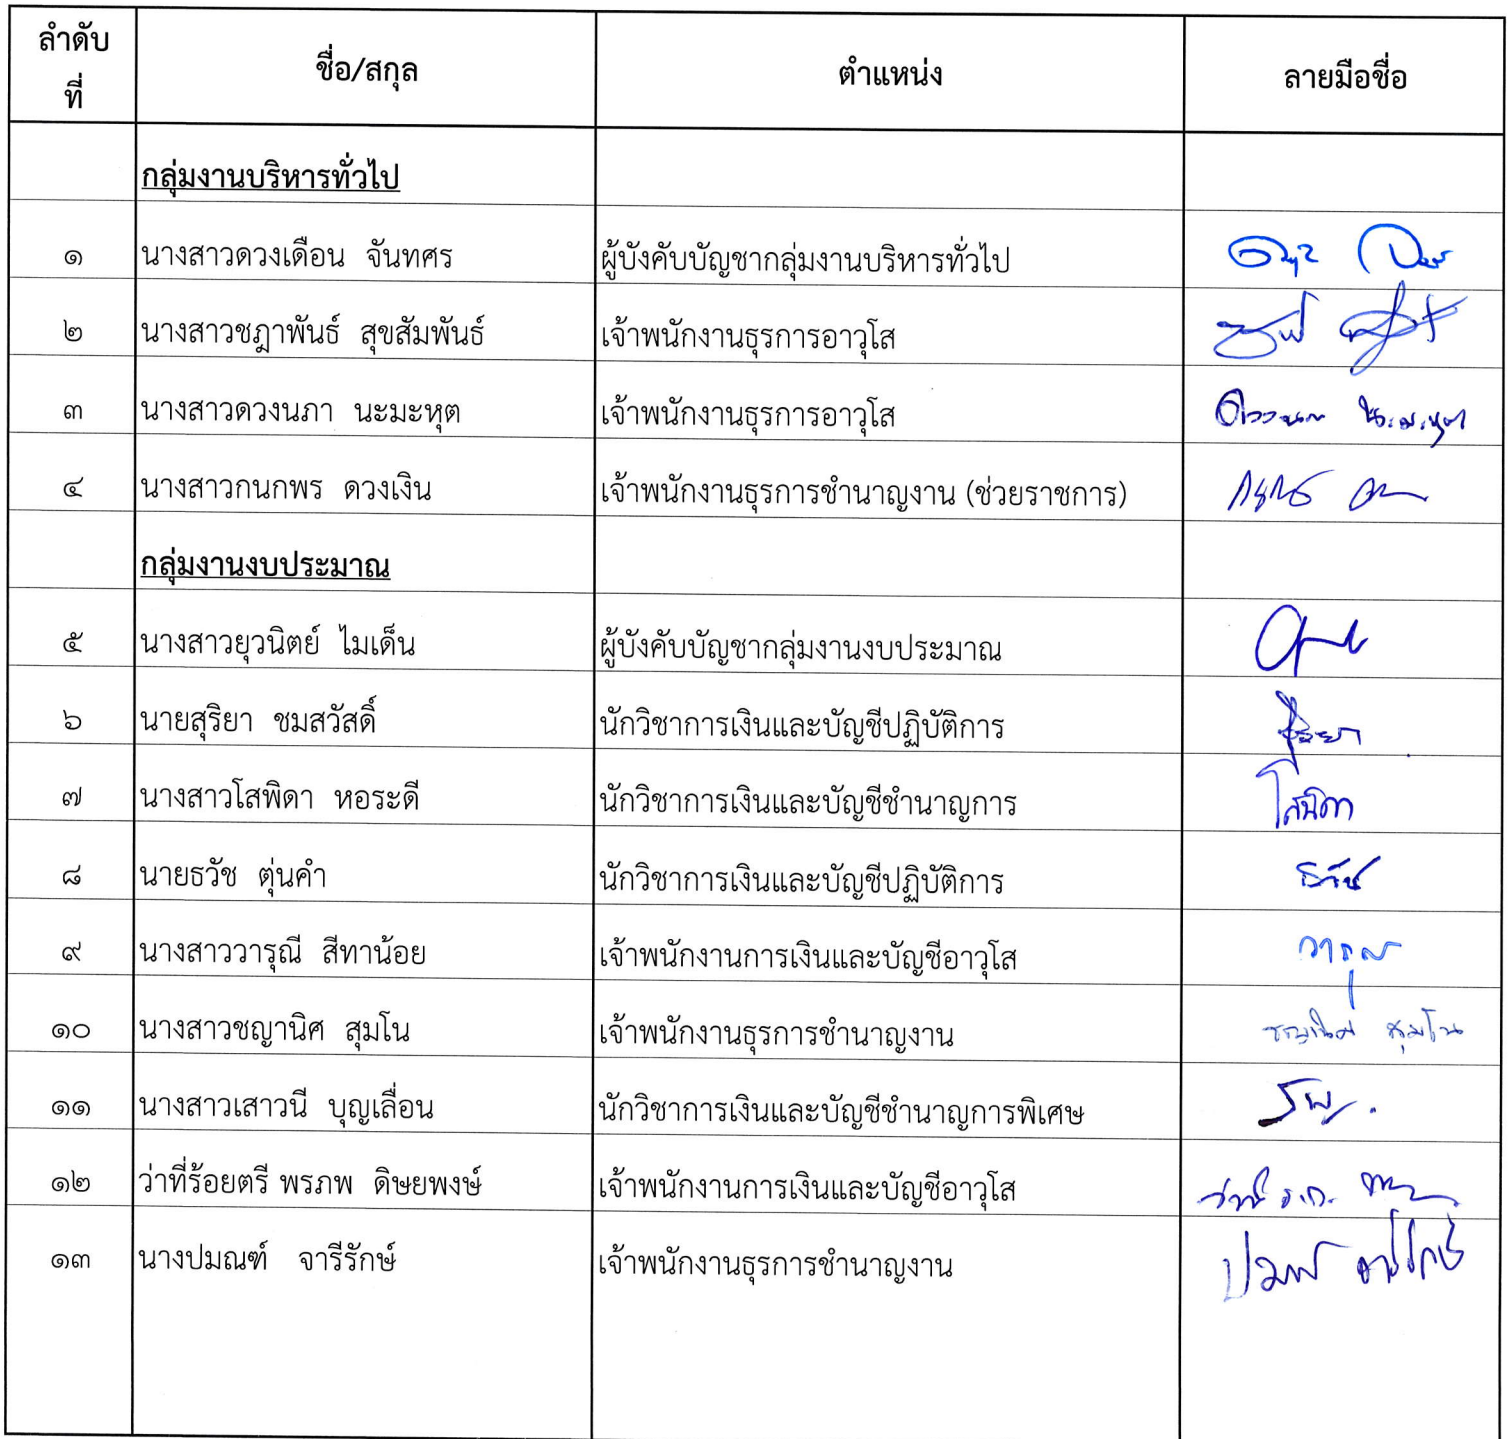 ลำดับ
ที่
ชื่อ/สกุล
ตำแหน่ง
ลายมือชื่อ
กลุ่มงานบริหารทั่วไป
๑ นางสาวดวงเดือน จันทศร ผู้บังคับบัญชากลุ่มงานบริหารทั่วไป
๒ นางสาวชฎาพันธ์ สุขสัมพันธ์ เจ้าพนักงานธุรการอาวุโส
๓ นางสาวดวงนภา นะมะหุต เจ้าพนักงานธุรการอาวุโส ดวงนภา นะมะหุต
๔ นางสาวกนกพร ดวงเงิน เจ้าพนักงานธุรการชำนาญงาน (ช่วยราชการ)
กลุ่มงานงบประมาณ
๕ นางสาวยุวนิตย์ ไมเด็น ผู้บังคับบัญชากลุ่มงานงบประมาณ
๖ นายสุริยา ชมสวัสดิ์ นักวิชาการเงินและบัญชีปฏิบัติการ สุริยา
๗ นางสาวโสพิดา หอระดี นักวิชาการเงินและบัญชีชำนาญการ โสพิดา
๘ นายธวัช ตุ่นคำ นักวิชาการเงินและบัญชีปฏิบัติการ ธวัช
๙ นางสาววารุณี สีทาน้อย เจ้าพนักงานการเงินและบัญชีอาวุโส
๑๐ นางสาวชญานิศ สุมโน เจ้าพนักงานธุรการชำนาญงาน ชญานิศ สุมโน
๑๑ นางสาวเสาวนี บุญเลื่อน นักวิชาการเงินและบัญชีชำนาญการพิเศษ
๑๒ ว่าที่ร้อยตรี พรภพ ดิษยพงษ์ เจ้าพนักงานการเงินและบัญชีอาวุโส
๑๓ นางปมณฑ์ จารีรักษ์ เจ้าพนักงานธุรการชำนาญงาน ปมณฑ์ จารีรักษ์